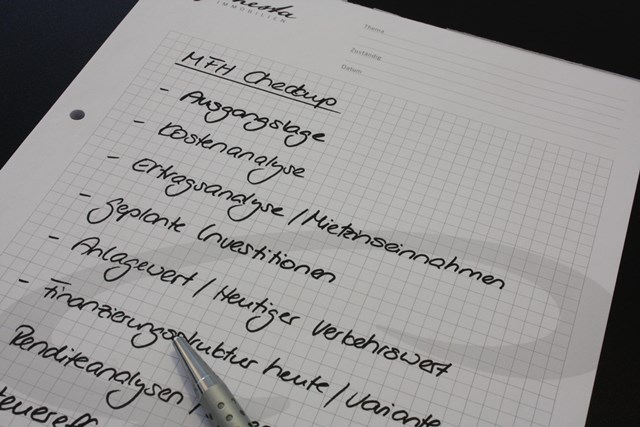 IMMOBILIEN
Thema
Zuständig
Datum
MFH Checkup
- Ausgangslage
- Kostenanalyse
- Ertragsanalyse / Mietzinseinnahmen
- geplante Investitionen
- Anlagewert / Heutiger Verkehrswert
- Finanzierungsstruktur heute / Variante
Renditeanalysen /